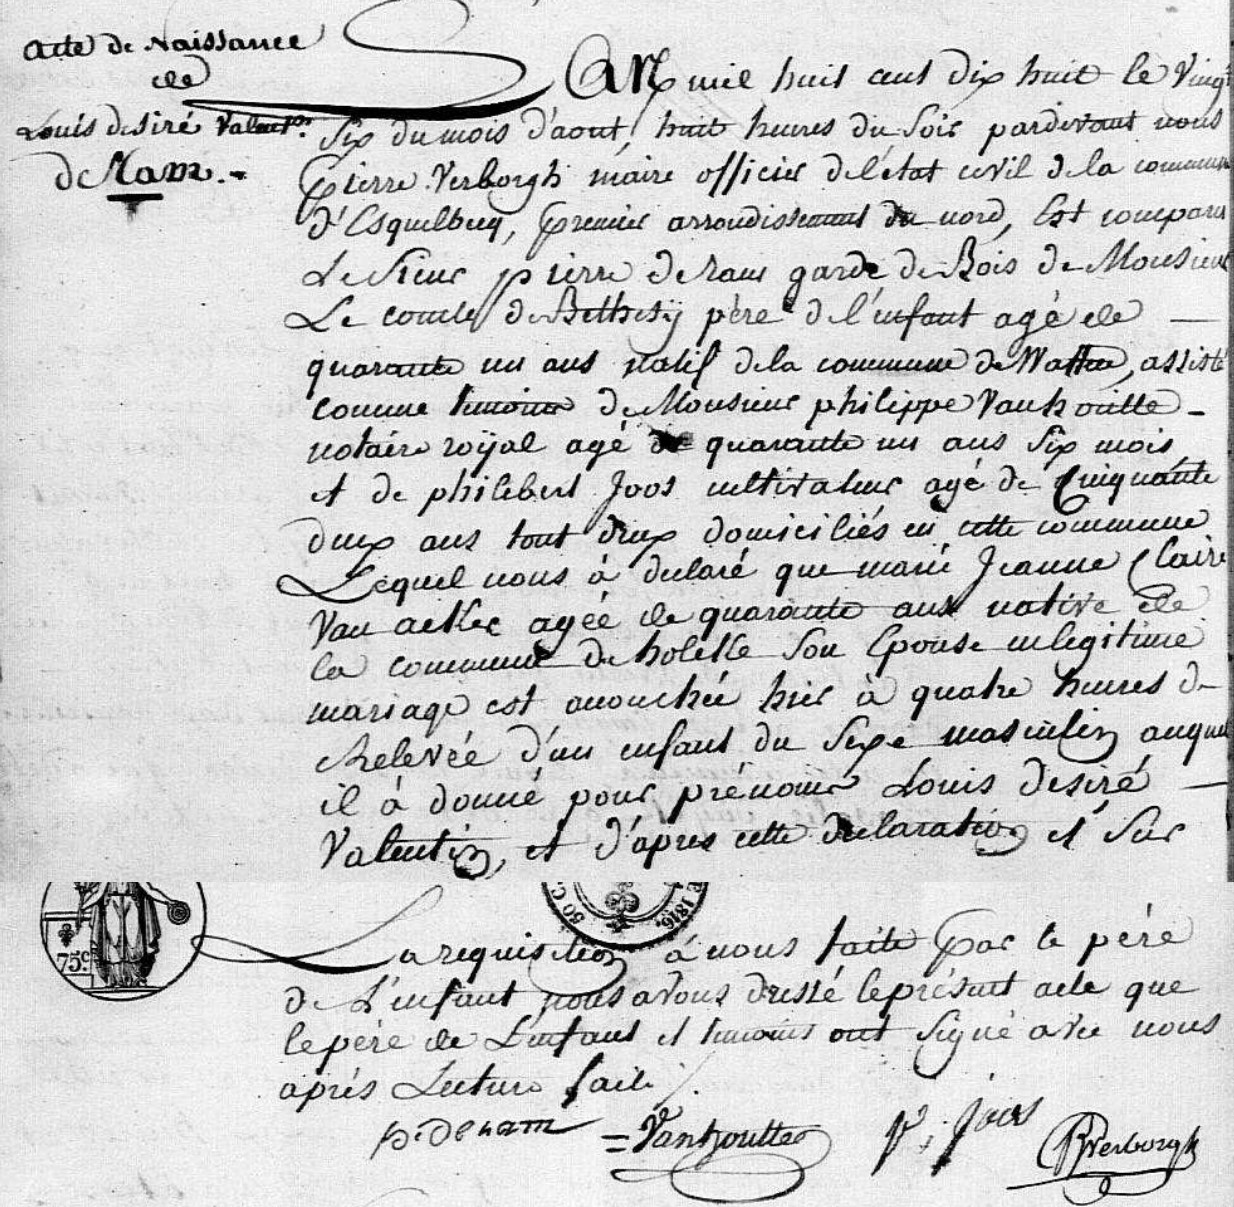 acte de Naissance
de
Louis desiré Valentin
de Ram.-
L'AN mil huit cent dix huit le Vingt
Six du mois d'aout, huit heures du Soir pardevant nous
pierre Verborgh maire officier de l'état civil de la commune
d'Esquelbecq, premier arrondissement du nord, Est comparu
Le Sieur pierre de ram garde de Bois de Monsieur
Le comte de Bethesy père de l'enfant agé de —
quarante un ans natif de la commune de Watten, assisté
comme temoins de Monsieur philippe Vanhoutte -
notaire royal agé de quarante un ans Six mois
et de philebert Joos cultivateur agé de Cinquante
deux ans tout deux domiciliés en cette commune
Lequel nous à declaré que marie Jeanne Claire
Van acker agée de quarante ans native de
la commune de holcke Son Epouse en legitime
mariage est accouchée hier à quatre heures de
Relevée d'un enfant du Sexe masculin auquel
il à donné pour prénoms Louis desiré —
Valentin, et d'apres cette declaration et Sur
75.c
50 C.
1816.
La requisition à nous faite par le père
de L'enfant nous avons dressé le présent acte que
le père de L'enfant et temoins ont Signé avec nous
aprés Lecture faite /.
p. de ram = Vanhoutte p. joos P Verborgh